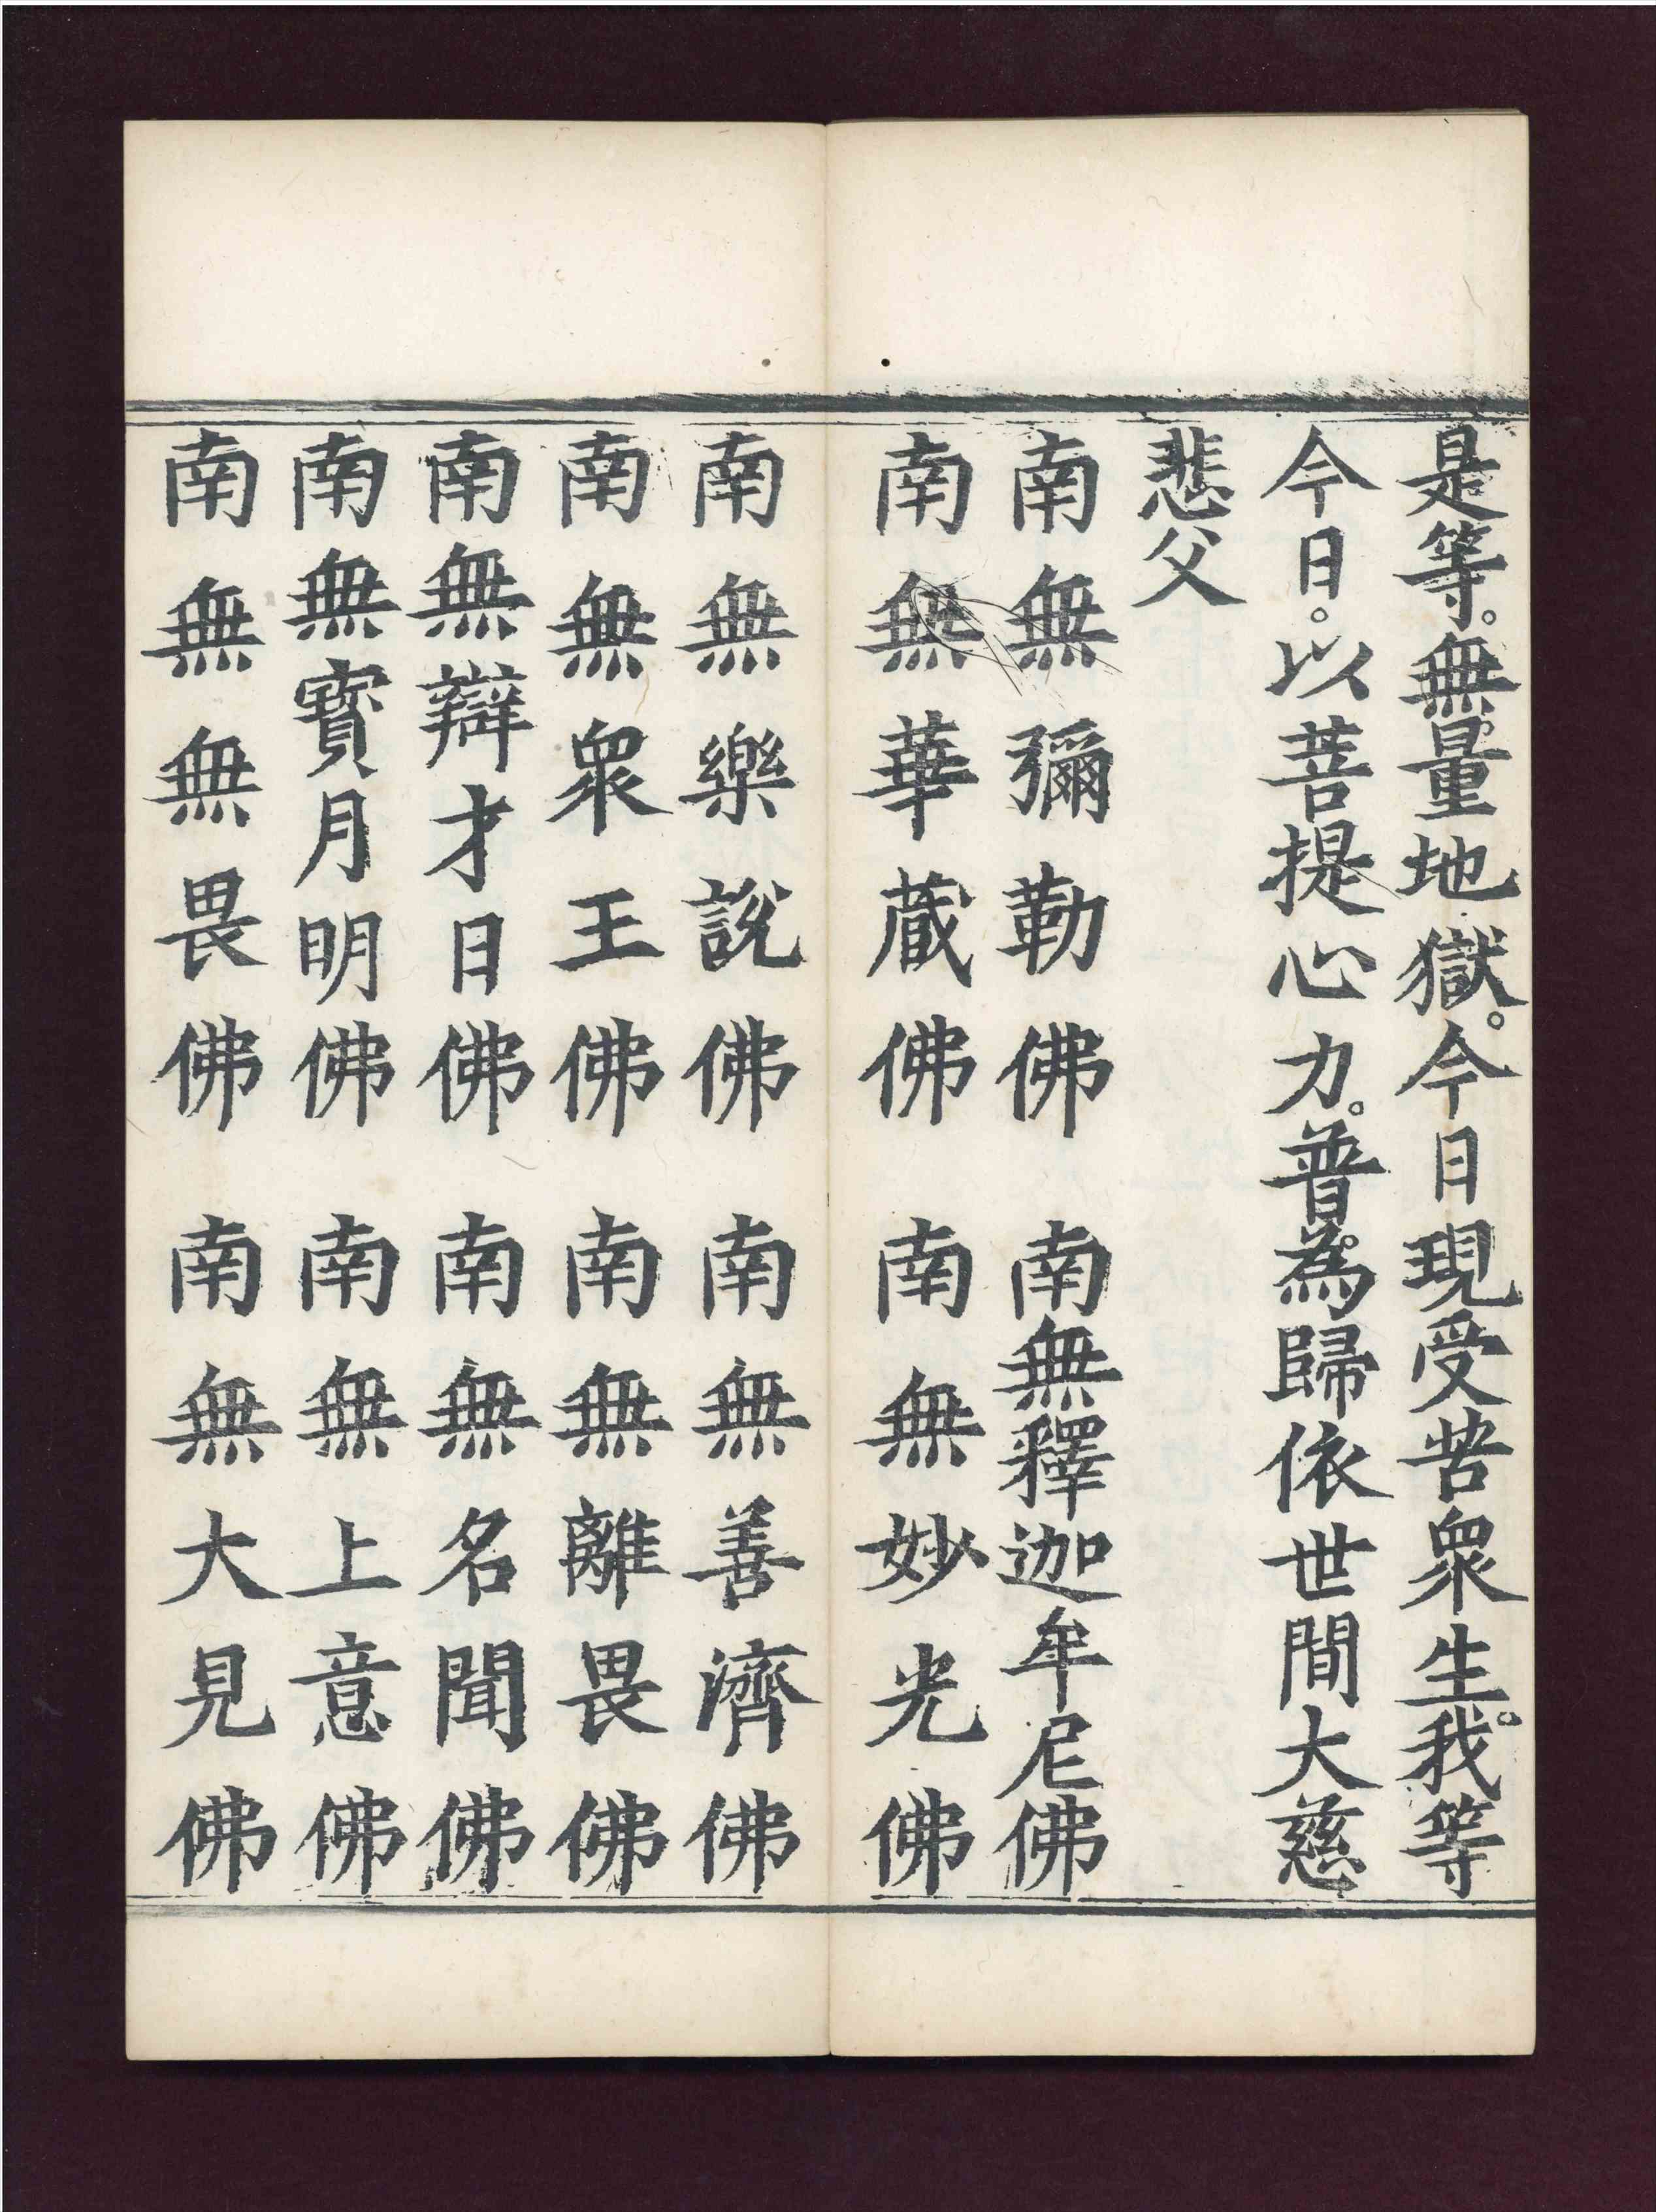 是等。無量地獄。今日現受苦衆生。我等
今日。以菩提心力。普為歸依世間大慈
悲父
南無彌勒佛　南無釋迦牟尼佛
南無華蔵佛　南無妙光佛
南無樂說佛　南無善濟佛
南無衆王佛　南無離畏佛
南無辯才日佛　南無名聞佛
南無寳月明佛　南無上意佛
南無無畏佛　南無大見佛